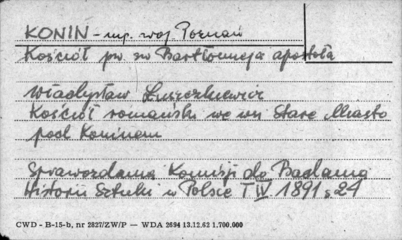 KONIN - mp. woj Poznań
Kościół pw. św Bartłomieja apostoła
Władysław Łuszczkiewicz
Kościół romański we wsi Stare Miasto
pod Koninem
Sprawozdania Komisji do Badania
Historii Sztuki w Polsce T IV. 1891 s 24
CWD - B-15-b, nr 2827/ZW/P — WDA 2694 13.12.62 1.700.000